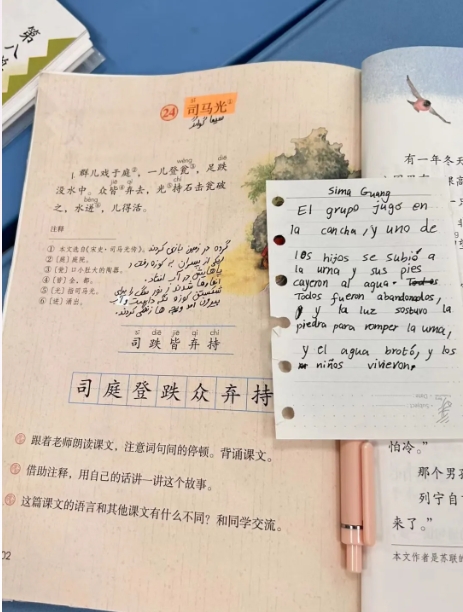 第八
24 司马光①
sī
سیما گوانگ
wèng diē
1. 群儿戏于庭②,一儿登瓮③,足跌
jiē qì chí
没水中。众皆④弃去,光⑤持石击瓮破
bèng
之,水迸⑥,儿得活。
注释
① 本文选自《宋史·司马光传》。
② [庭] 庭院。
③ [瓮] 口小肚大的陶器。
④ [皆] 全,都。
⑤ [光] 指司马光。
⑥ [迸] 涌出。
گروه در زمین بازی کردند
sī diē jiē qì chí
司 跌 皆 弃 持
司 庭 登 跌 众 弃 持
跟着老师朗读课文,注意词句间的停顿。背诵课文。
借助注释,用自己的话讲一讲这个故事。
这篇课文的语言和其他课文有什么不同?和同学交流。
02
Sima Guang
El grupo jugó en
la cancha, y uno de
los hijos se subió a
la urna y sus pies
cayeron al agua.
Todos fueron abandonados,
y la luz sostuvo la
piedra para romper la urna,
y el agua brotó, y los
niños vivieron.
有一年冬天
怕冷。”
那个男孩
列宁自
来了。”
本文作者是苏联的